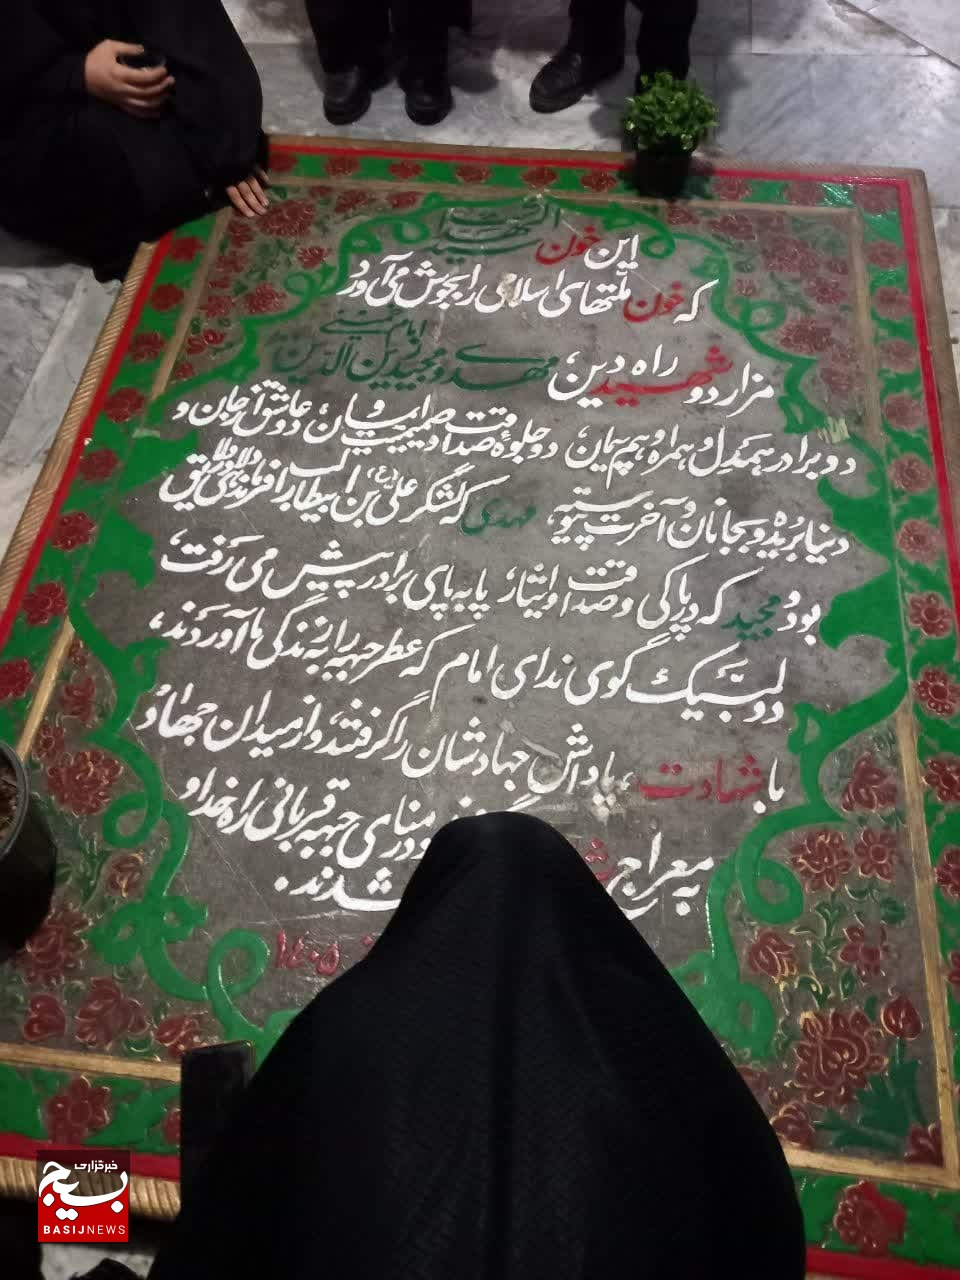 سید الشهدا
این خون
که خون ملتهای اسلامی را بجوش می‌آورد
امام خمینی
مزار دو شهید راه دین، مهدی و مجید زین‌الدین
دو برادر همدل و همراه و هم پیمان، دو جلوهٔ صداقت و صمیمیت و ایمان، دو عاشق از جان و
دنیا بریده و بجانان و آخرت پیوسته، مهدی که لشکر علی بن ابیطالب (ع) را فرمانده لایق
بود و مجید که در پاکی و صداقت و ایثار، پا به پای برادر پیش می‌رفت،
دو لبیک گوی ندای امام که عطر جبهه را به زندگی ما آوردند،
با شهادت، پاداش جهادشان را گرفتند، و از میدان جهاد
به معراج در منای جبهه قربانی راه خدا
شدند.
۱۴۰۵
خبرگزاری
بسیج
BASIJNEWS